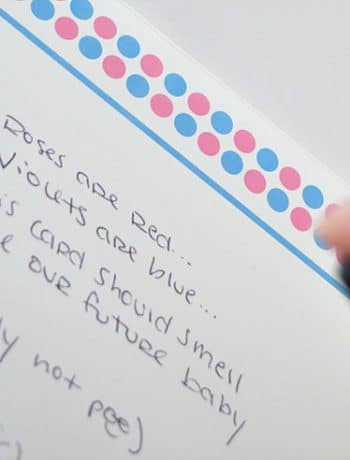 Roses are Red...
Violets are blue...
is card should smell
e our future baby
ly not pee)